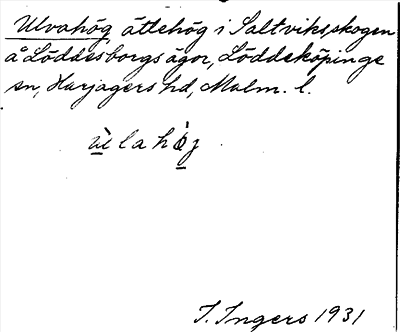 Ulvahög ättehög i Saltviksskogen
å Löddesborgs ägor, Löddeköpinge
sn, Harjagers hd, Malm. l.
I. Ingers 1931